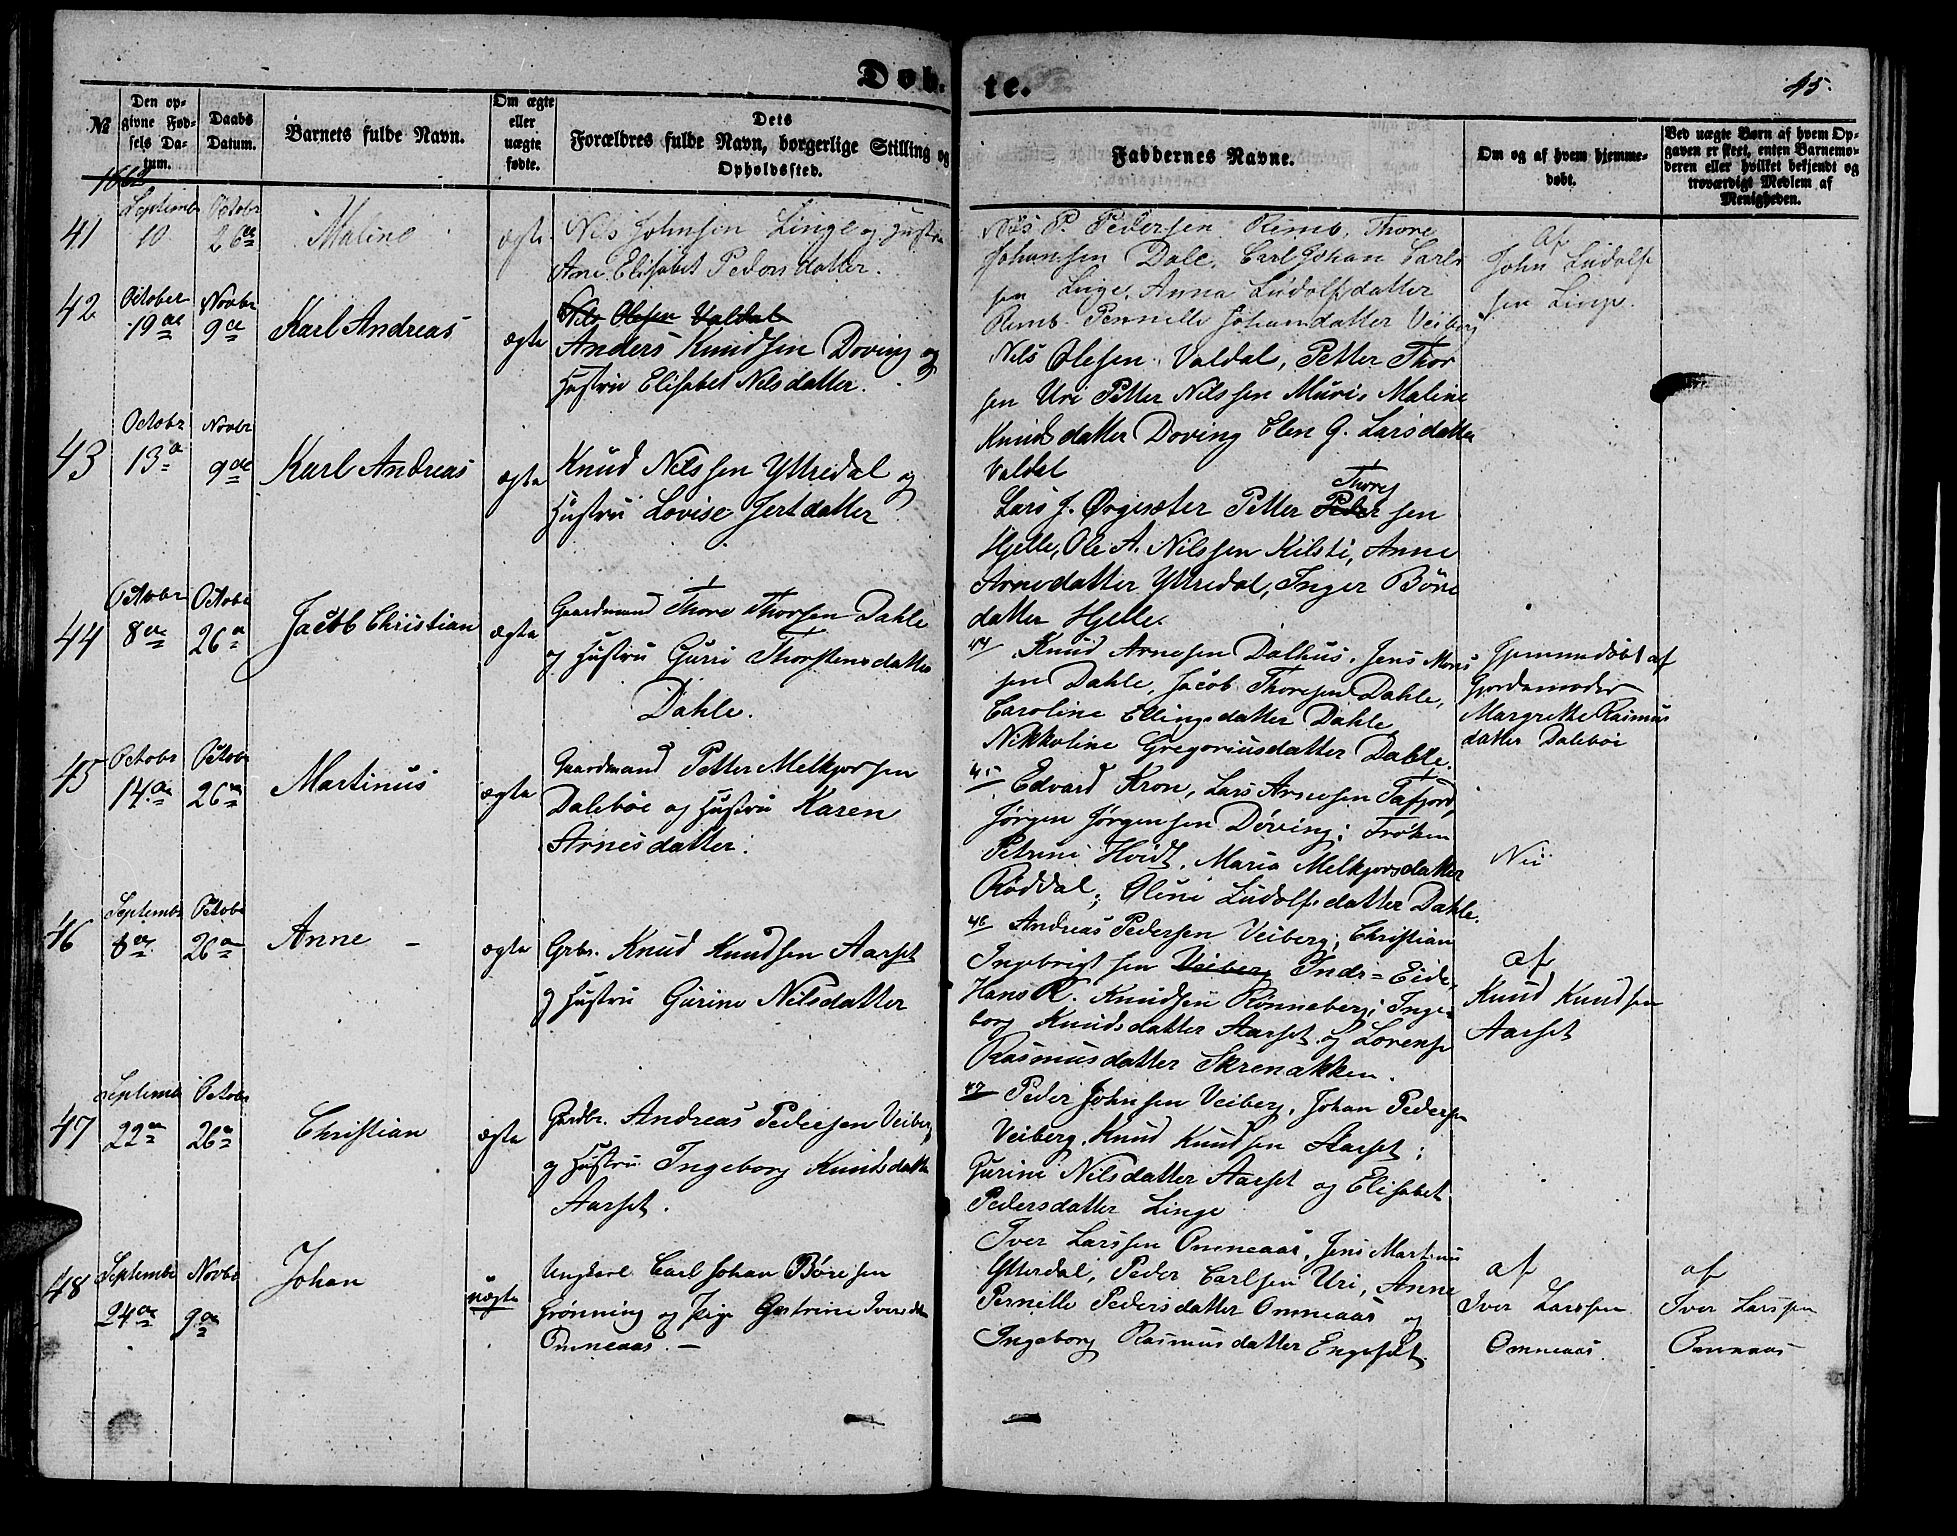 Døb-
te.
45.
№
Den op-
givne Fød-
sels Da-
tum.
Daabs
Datum.
Barnets fulde Navn.
Om ægte
eller
uægte
fødte.
Dets
Forældres fulde Navn, borgerlige Stilling og
Opholdssted.
Faddernes Navne.
Om og af hvem hjemme-
døbt.
Ved uægte Børn af hvem Op-
gaven er skeet, enten Barnemo-
deren eller hvilket bekjendt og
troværdigt Medlem af
Menigheden.
41
Septembr
10
Octobr
26de
Maline
ægte
Nils Johnsen Linge og Hustru
Ane Elisabet Pedersdatter.
Nils P. Pedersen Remb. Thore
Johansen Dale. Carl Johan Carls
sen Linge. Anna Ludolfsdatter
Remb. Pernelle Johansdatter Veiberg
Af
John Ludolf
sen Linge.
42
October
19de
Novbr
9de
Karl Andreas
ægte
Nils Olesen Valdal
Anders Knudsen Døving og
Hustru Elisabet Nilsdatter.
Nils Olesen Valdal, Petter Thor
sen Uri Petter Nilssen Muri, Maline
Knudsdatter Døving Elen G. Larsdatter
Valdal
43
Octobr
13de
Novbr
9de
Karl Andreas
ægte
Knud Nilssen Yttredal og
Hustru Lovise Jertdatter
Lars J. Ørgesæter Petter Peder Thores sen
Hjelle, Ole A. Nilssen Kilsti, Anne
Arnesdatter Yttredal, Inger Børe
datter Hjelle.
44
Octobr
8de
Octobr
26de
Jacob Christian
ægte
Gaardmand Thore Thorsen Dahle
og Hustru Gurri Thorstensdatter
Dahle.
44 Knud Arnesen Dalhus, Jens Mons
sen Dahle, Jacob Thoresen Dahle,
Caroline Ellingsdatter Dahle,
Nikkoline Gregoriusdatter Dahle.
Hjemmedøbt af
Jordemoder
Margrethe Rasmus
datter Dalebøe
45
Octobr
14de
Octobr
26de
Martinus
ægte
Gaardmand Petter Melkjorsen
Dalebøe og Hustru Karen
Arnesdatter.
45 Edvard Kron, Lars Arnesen Tafjord,
Jørgen Jørgensen Døving; Frøken
Petrine Hoidt, Maria Melkjorsdatter
Røddal; Oline Ludolfsdatter Dahle.
Nei
46
Septembr
8de
Octobr
26de
Anne
ægte
Grbr. Knud Knudsen Aarset
og Hustru Gurine Nilsdatter
46 Andreas Pedersen Veiberg; Christian
Ingebrigtsen Veiberg Indr=Eide,
Hans R. Knudsen Rønneberg; Inge-
borg Knudsdatter Aarset og Lovense
Rasmusdatter Skrenakken.
af
Knud Knudsen
Aarset
47
Septembr
22de
Octobr
26de
Christian
ægte
Gardbr. Andreas Pedersen Veiberg
og Hustru Ingeborg Knudsdatter
Aarset.
47 Peder Johnsen Veiberg, Johan Pedersen
Veiberg Knud Knudsen Aarset;
Gurine Nilsdatter Aarset og Elisabet
Pedersdatter Linge
48
Septembr
24de
Novbr
9de
Johan
uægte
Ungkarl Carl Johan Børesen
Grønning og Pige Gertrine Iversdt
Omneaas. —
Iver Larssen Omneaas, Jens Martinus
Ytterdal, Peder Carlsen Uri, Anne
Pernille Pedersdatter Omneaas og
Ingeborg Rasmusdatter Engeset.
af
Iver Larssen
Omneaas.
af
Iver Larssen
Omneaas